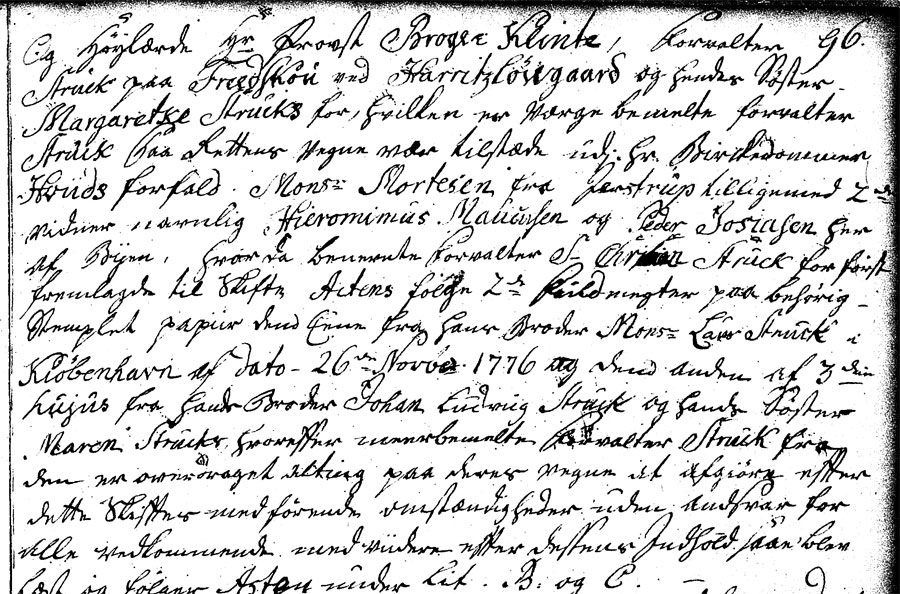 Og Höylærde Hr Provst Broger Klinte, Forvalter 96.
Struck paa Fredskou ved Harritzløwgaard og hendes Söster
Margarethe Strucks for, hvilken er Værge bemelte forvalter
Struck paa Rettens vegne vær tilstæde udi hr. Birckedommer
Hviids forfald. Mons: Mortesen fra Jerstrup tilligemed 2de
vidner navnlig Hieromimus Mauensen og Peder Josiasen her
af Byen, hvorda benevnte Forvalter S. Christian Struck for först
fremlagde til Skifte Actens följe 2de fuldmegter paa behörig
Stemplet papiir dend Eene fra hans Broder Mons: Lars Struck i
Kiöbenhavn af dato 26de Novbr. 1776 og dend anden af 3die
hujus fra hands Broder Johan Ludvig Struck og hands Söster
Maren Strucks, hvorefter meerbemelte forvalter Struck fra
dem er overdraget alting paa deres vegne at afgiöre efter
dette Skiftes medförende omstændigheder uden andsvar for
alle vedkommende med viidere efter dessens Indhold saae blev
læst og fölger Acten under Lit. B. og C.